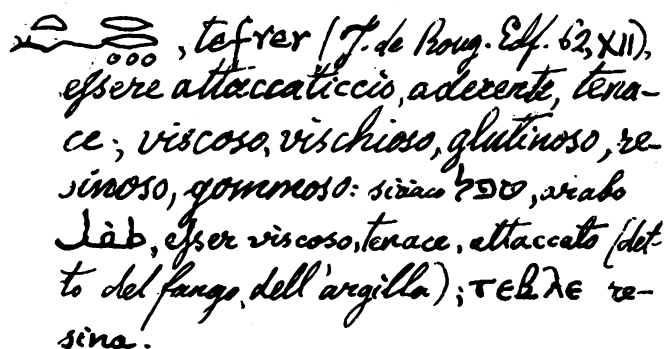 , tefrer (J. de Roug. Edf. 62, XII),
essere attaccaticcio, aderente, tena-
ce; viscoso, vischioso, glutinoso, re-
sinoso, gommoso: siriaco טפל, arabo
طفل, esser viscoso, tenace, attaccato (det-
to del fango, dell'argilla); ⲧⲉⲃⲗⲉ re-
sina.